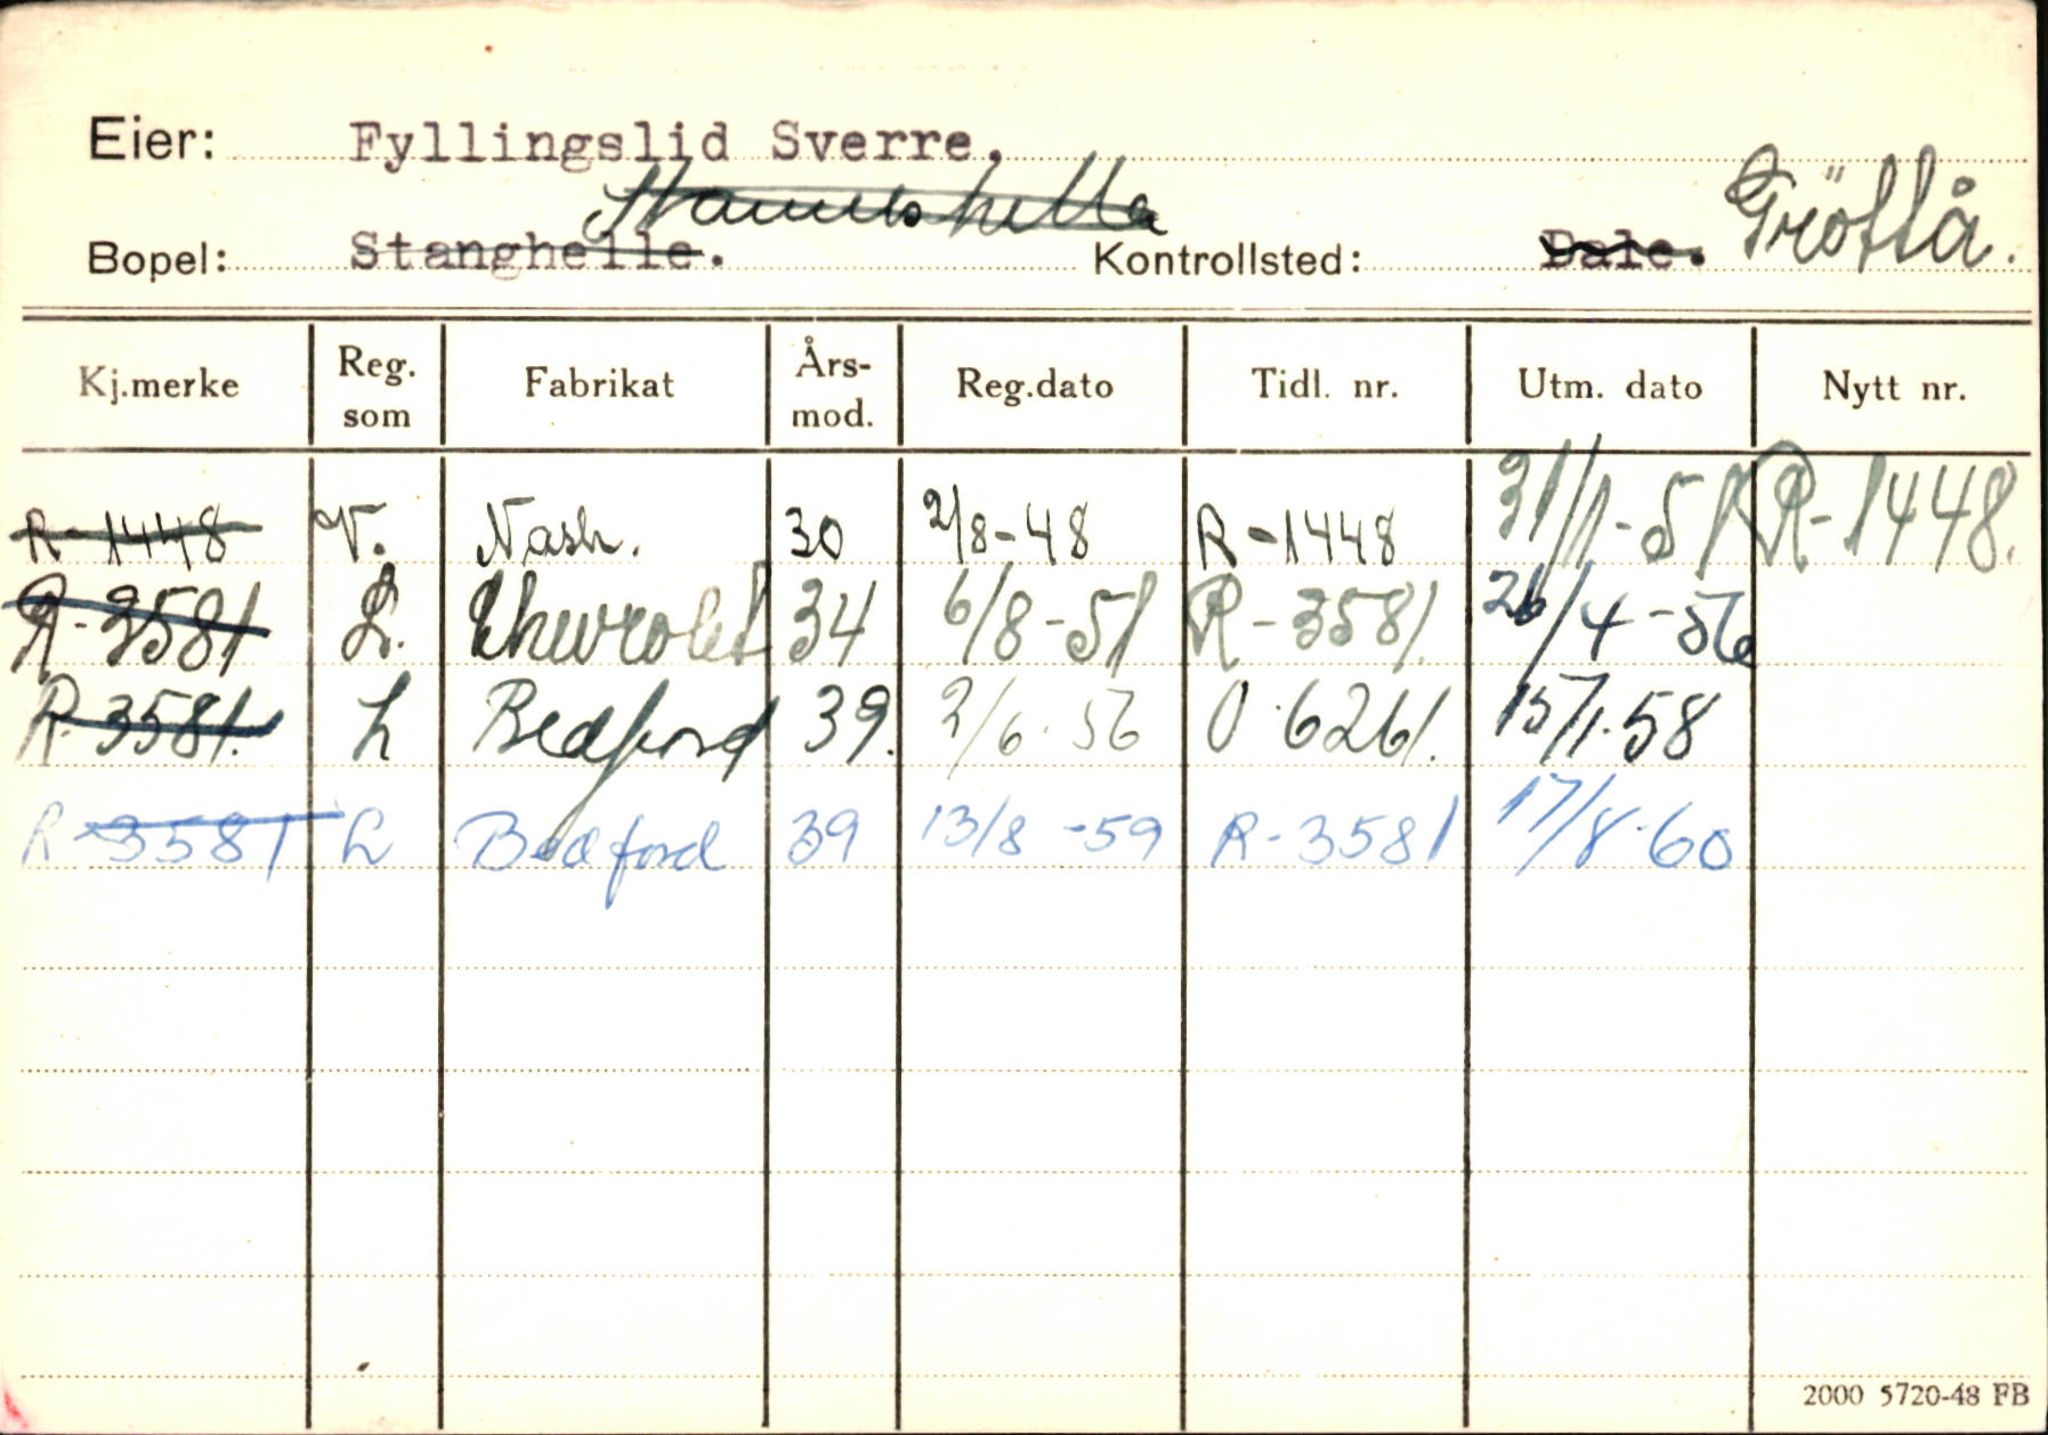 Eier: Fyllingslid Sverre,
Bopel: Stanghelle. Stamneshella Kontrollsted: Dale. Gröttå.
Kj.merke Reg. som Fabrikat Års-mod. Reg.dato Tidl. nr. Utm. dato Nytt nr.
R-1448 V. Nash. 30 2/8-48 R-1448 31/1-51 R-1448.
R-3581 L. Chevrolet 34 6/8-51 R-3581. 26/4-56
R-3581. L Bedford 39. 2/6.56 O.6261. 15/1.58
R-3581 L Bedford 39 13/8-59 R-3581 17/8.60
2000 5720-48 FB